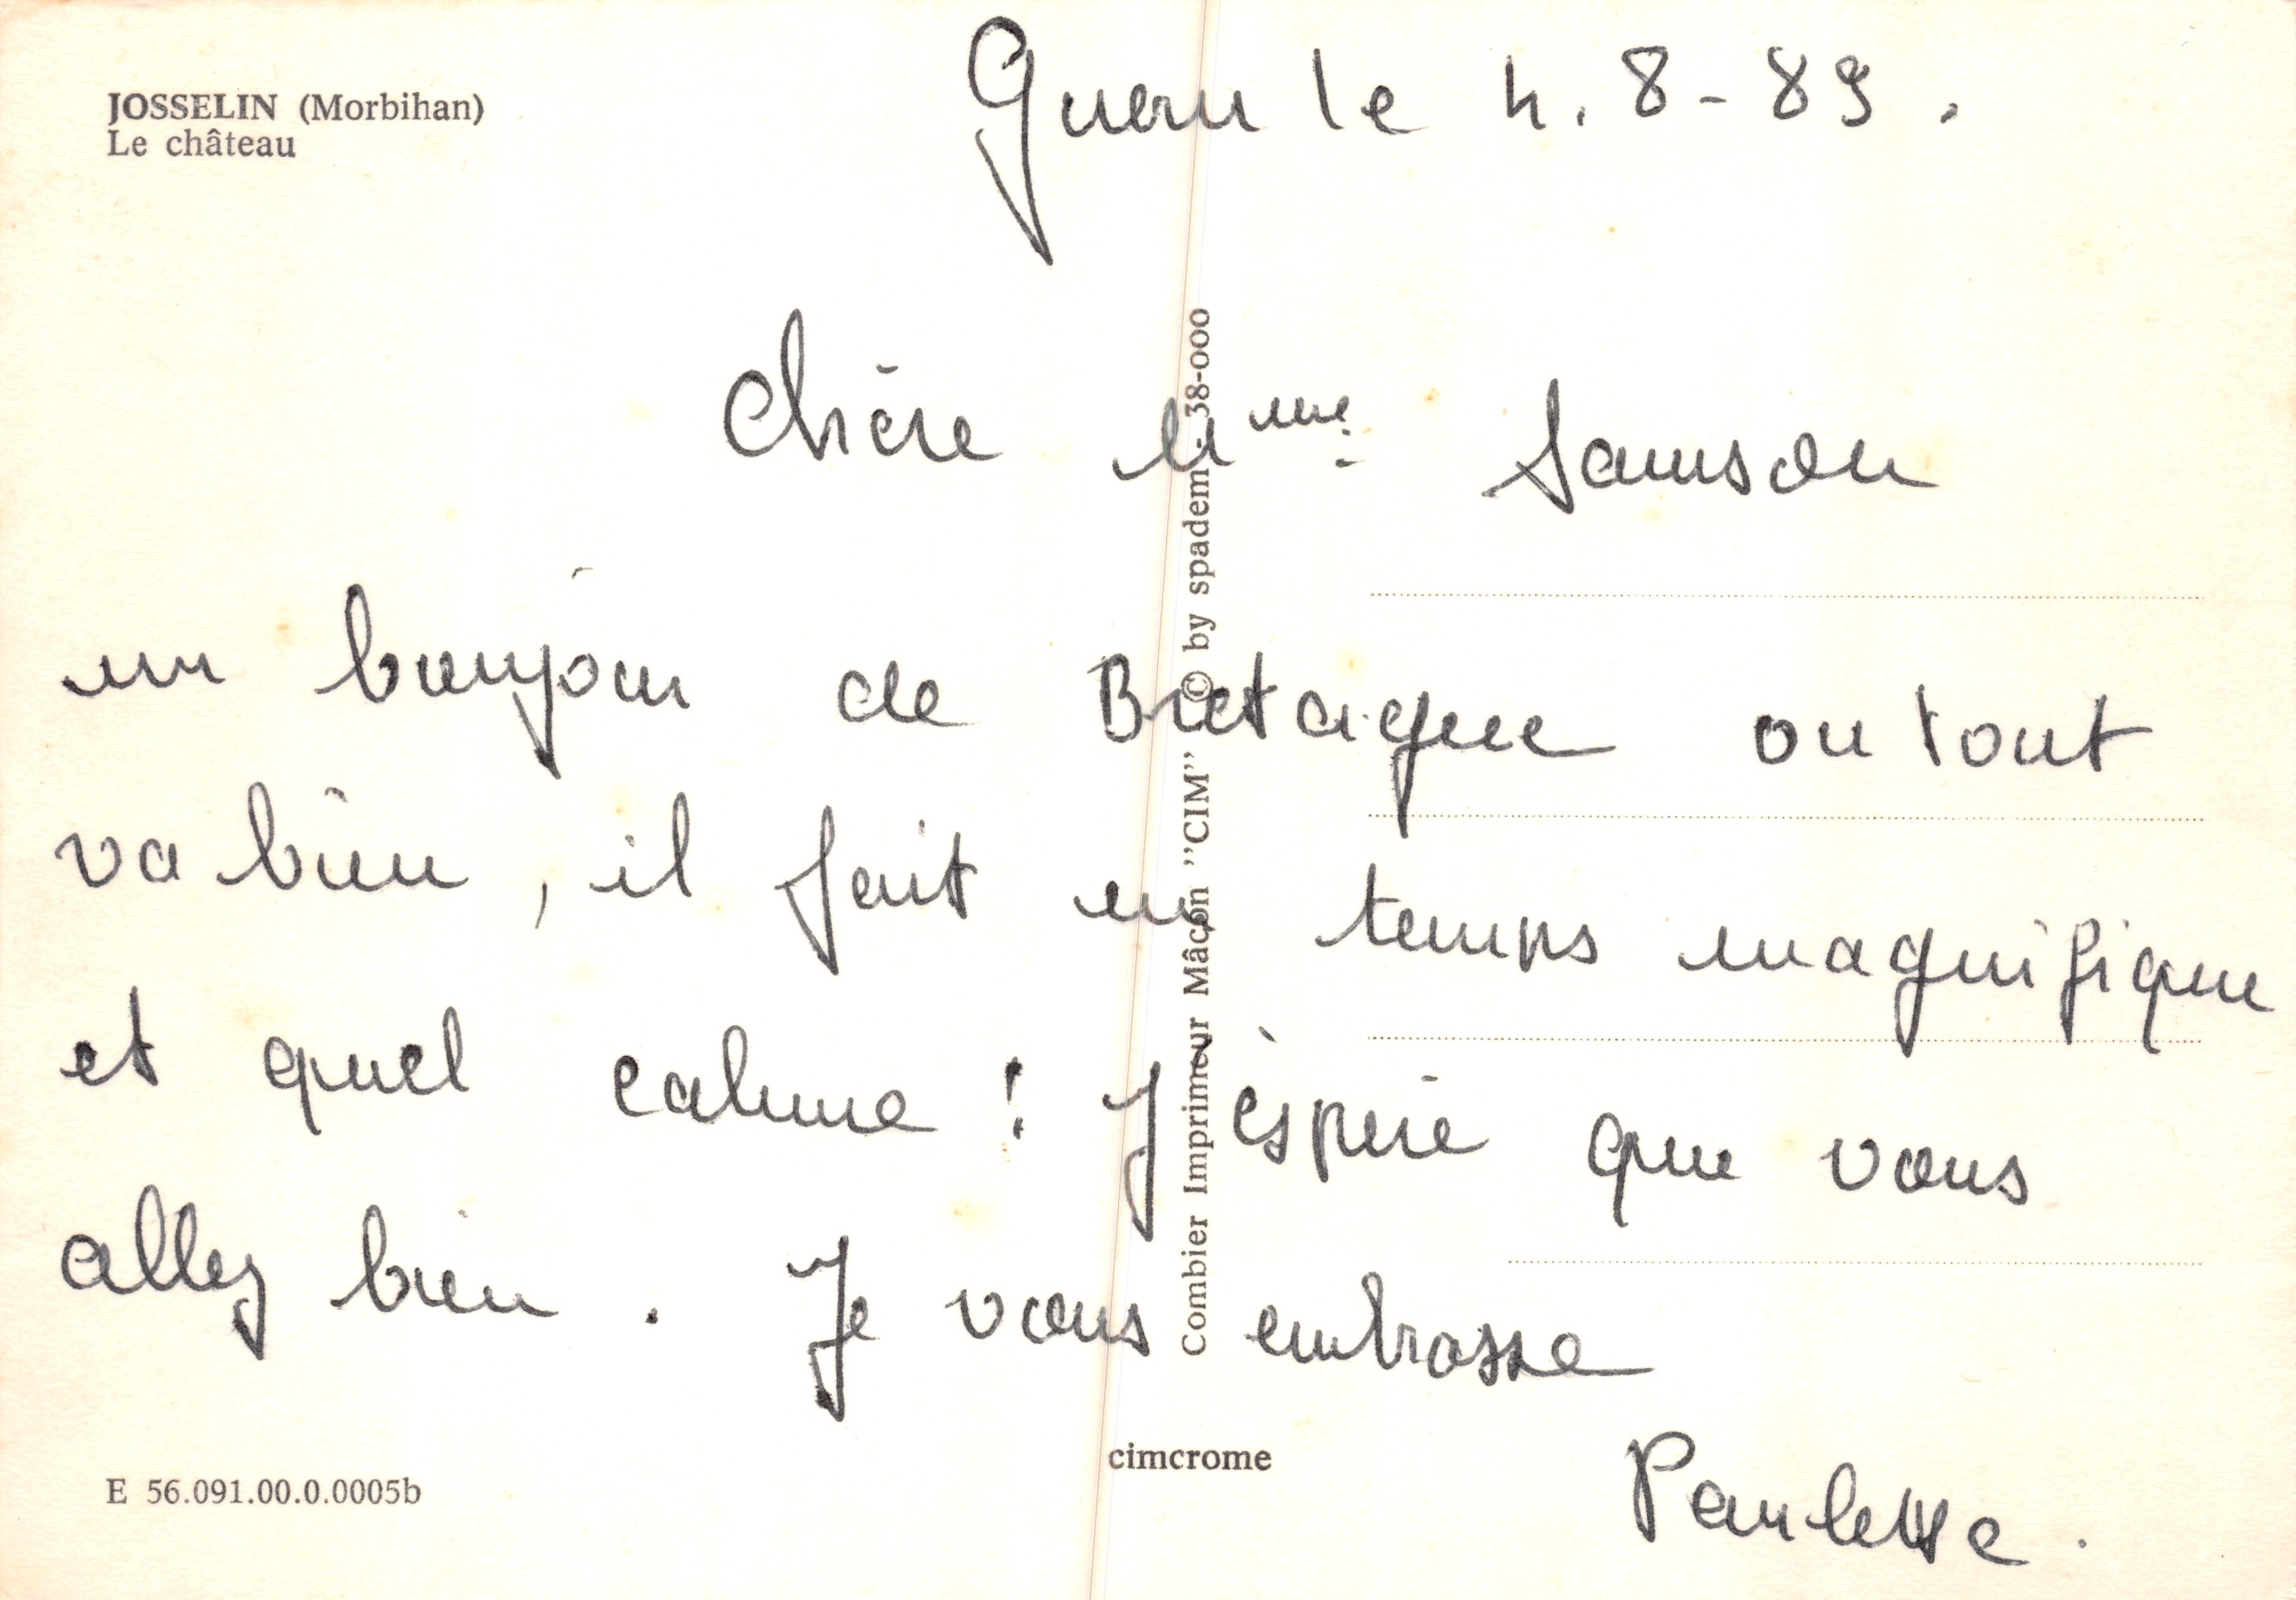 JOSSELIN (Morbihan)
Le château
Guern le 4.8-89.
Chère Mme Samson
un bonjour de Bretagne ou tout
va bien, il fait un temps magnifique
et quel calme ! J'éspère que vous
allez bien. Je vous embrasse
Paulette.
Combier Imprimeur Mâcon "CIM" © by spadem - 38-000
cimcrome
E 56.091.00.0.0005b